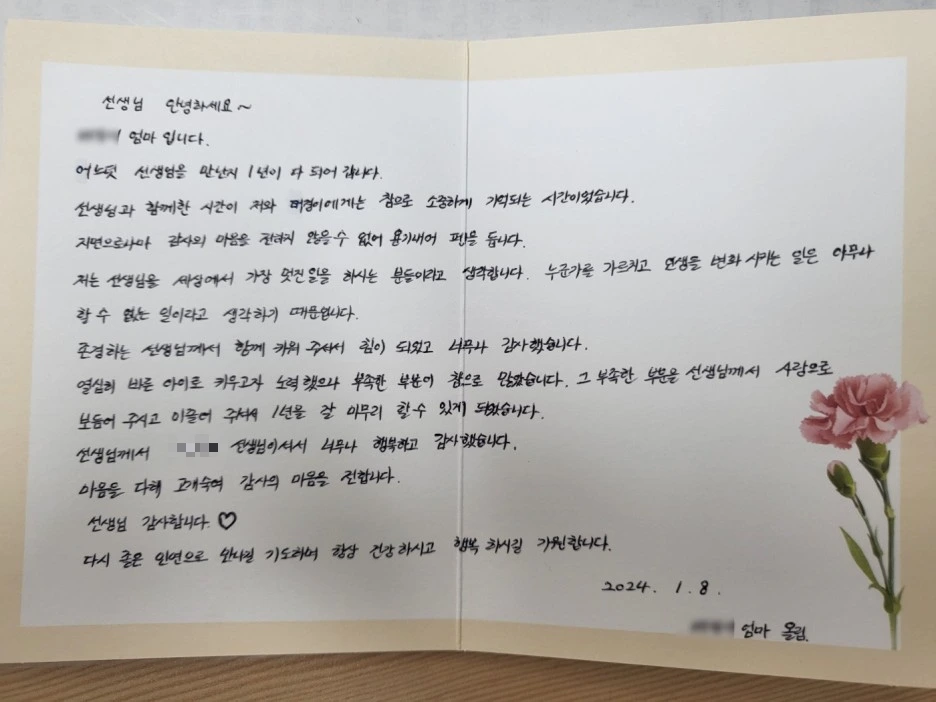 선생님 안녕하세요~
엄마입니다.
어느덧 선생님을 만난지 1년이 다 되어 갑니다.
선생님과 함께한 시간이 저와 에게는 참으로 소중하게 기억되는 시간이었습니다.
지면으로나마 감사의 마음을 전하지 않을 수 없어 용기내어 펜을 듭니다.
저는 선생님을 세상에서 가장 멋진 일을 하시는 분들이라고 생각합니다. 누군가를 가르치고 인생을 변화 시키는 일은 아무나
할 수 없는 일이라고 생각하기 때문입니다.
존경하는 선생님께서 함께 키워 주셔서 힘이 되었고 너무나 감사했습니다.
열심히 바른 아이로 키우고자 노력했으나 부족한 부분이 참으로 많았습니다. 그 부족한 부분을 선생님께서 사랑으로
보듬어 주시고 이끌어 주셔서 1년을 잘 마무리 할 수 있게 되었습니다.
선생님께서 선생님이셔서 너무나 행복하고 감사했습니다.
마음을 다해 고개숙여 감사의 마음을 전합니다.
선생님 감사합니다. ♡
다시 좋은 인연으로 만나길 기도하며 항상 건강하시고 행복 하시길 기원합니다.
2024. 1. 8.
엄마 올림.